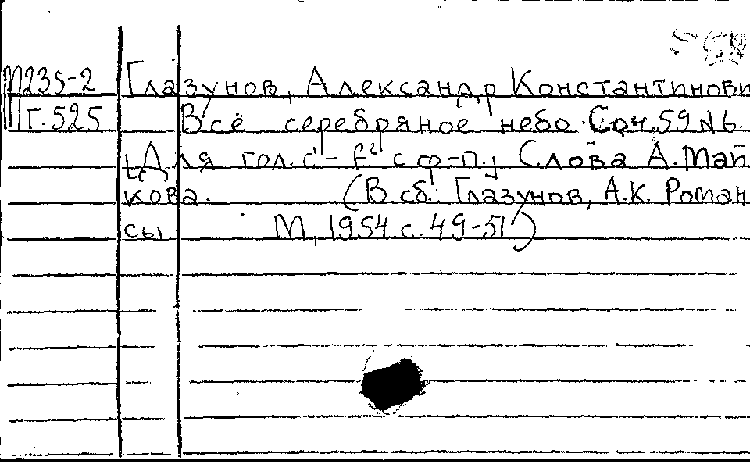 М235-2 Глазунов, Александр Константинови
Г.525 Всё серебряное небо. Соч. 59 №6.
[Для гол. c¹-f² с ф-п.; Слова А. Май
кова. (В сб: Глазунов, А.К. Роман
сы М, 1954 с. 49-51)